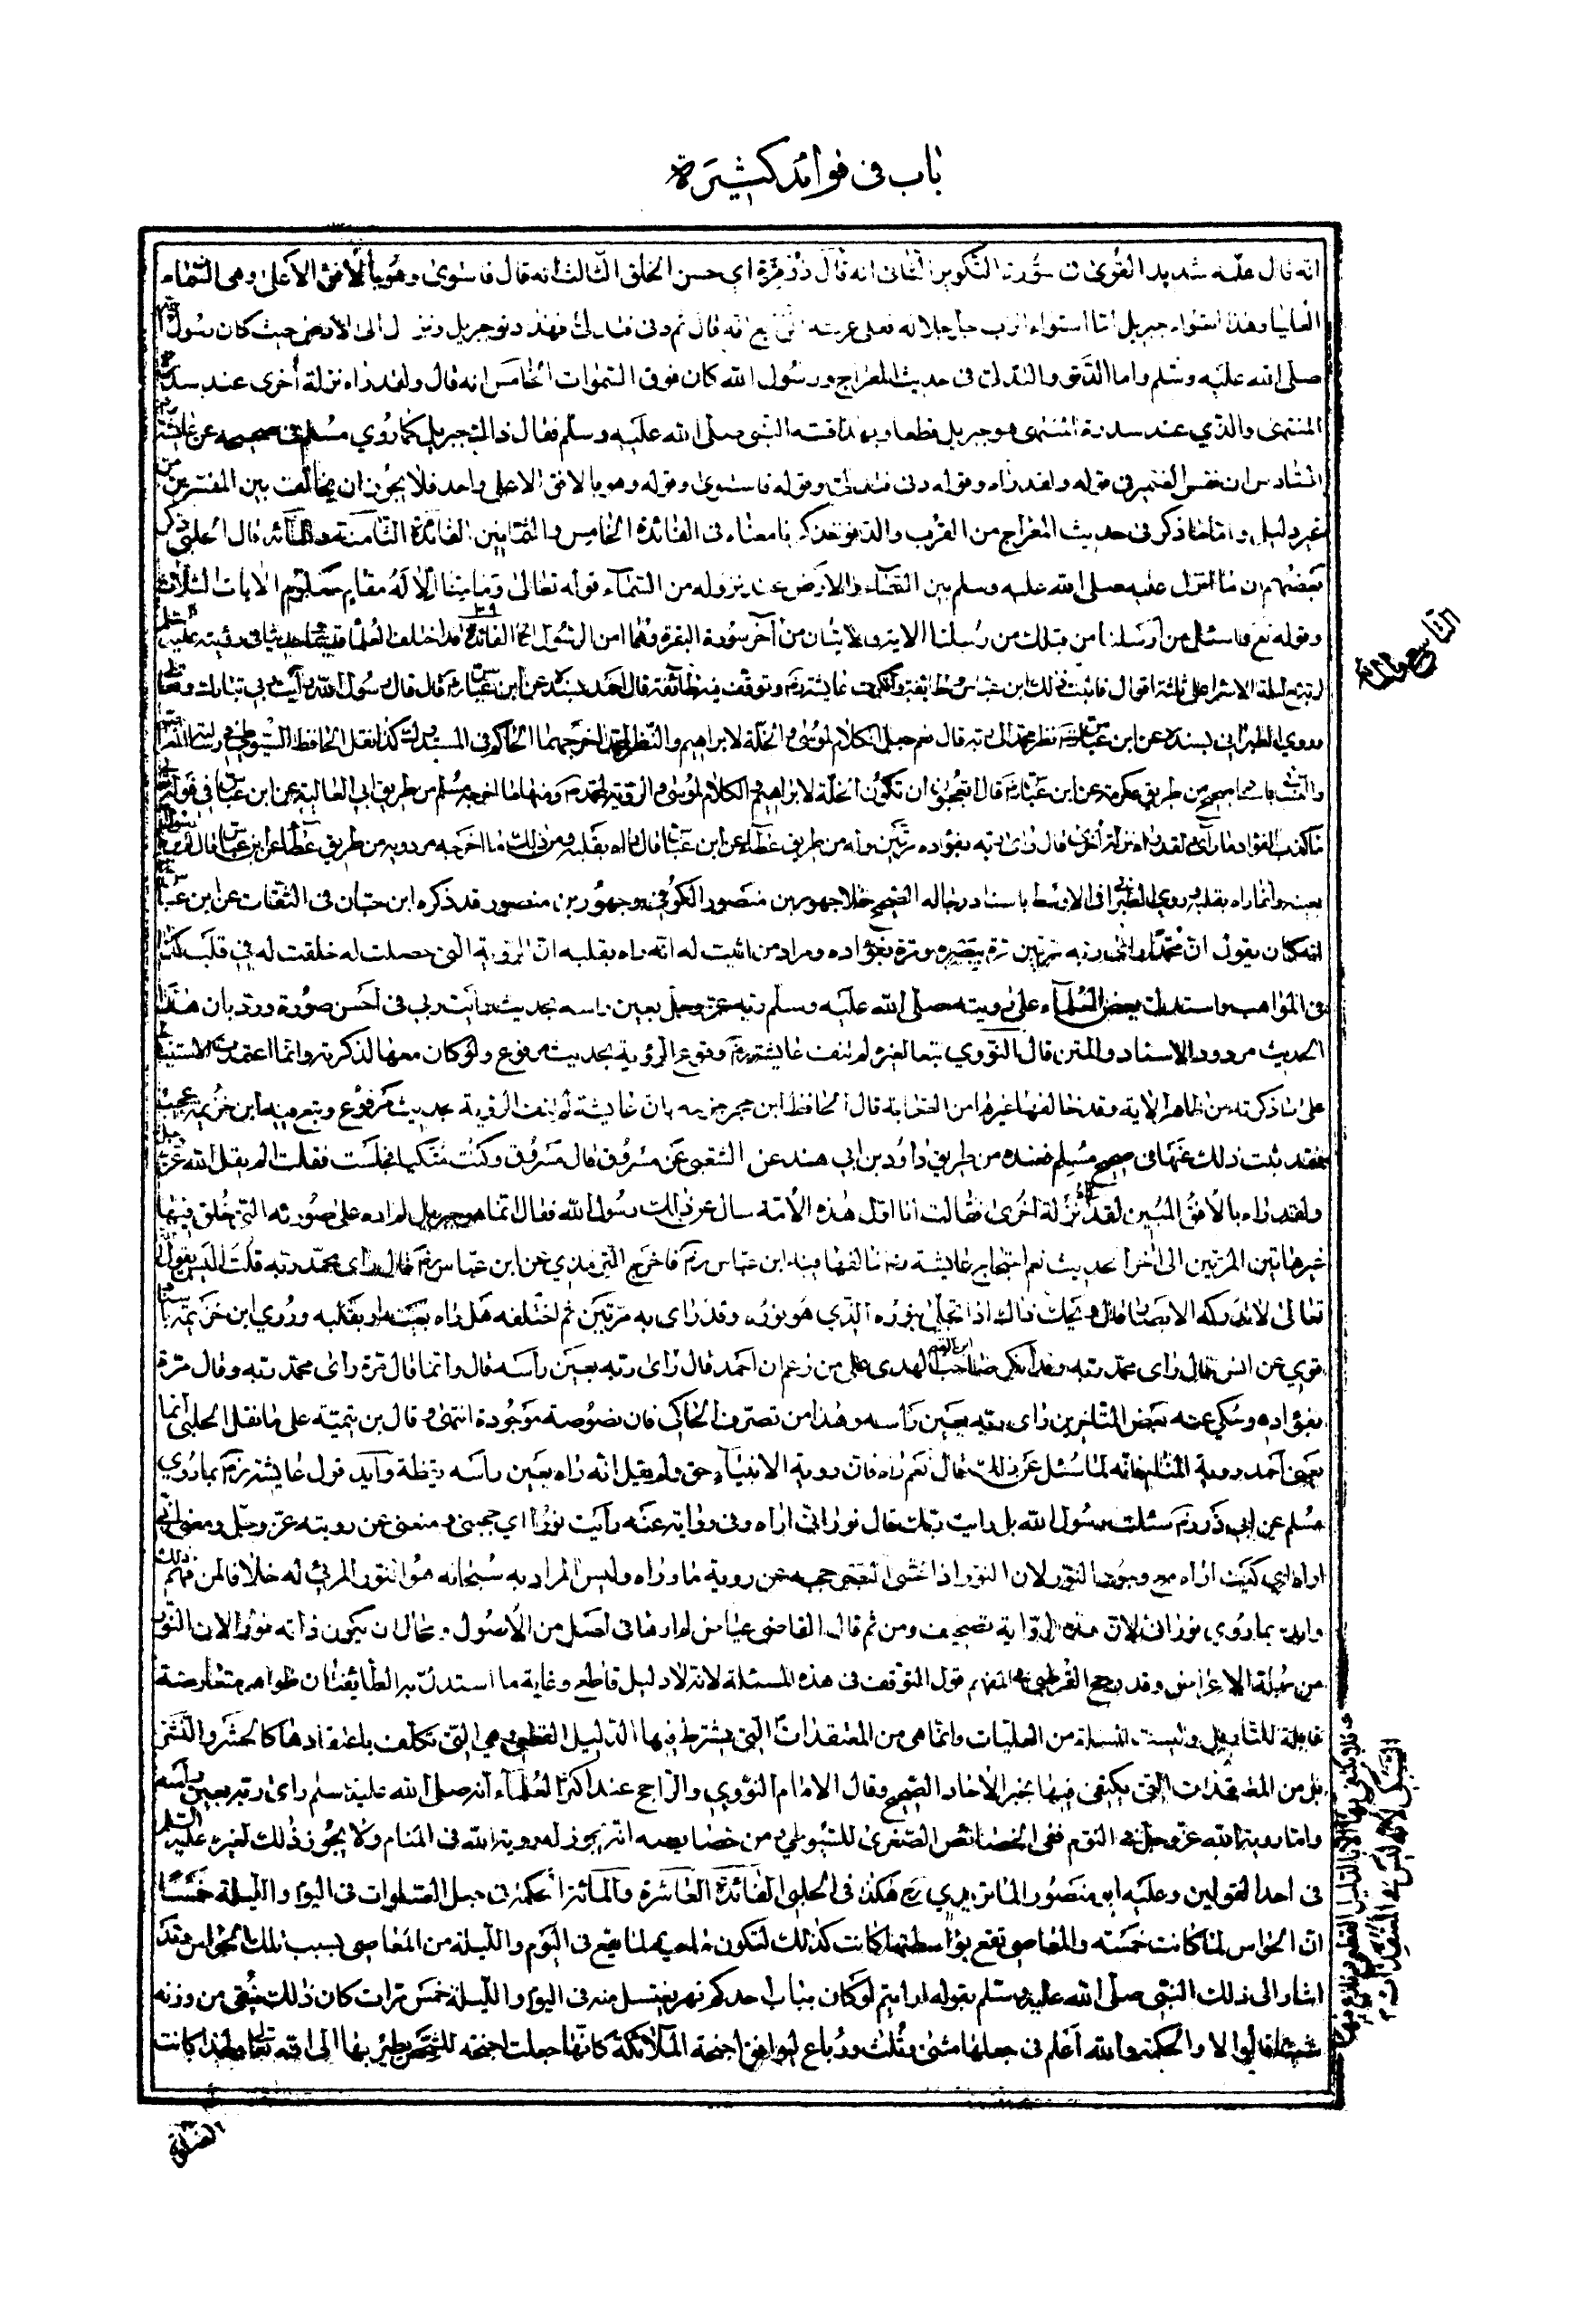 باب فى فوائد كثيرة
انه قال علمه شديد القوى فى سورة التكوير الثانى انه قال ذو مرة اى حسن الخلق الثالث انه قال فاستوى وهو بالافق الاعلى وهى السماء
العليا وهذا استواء جبريل اما استواء الرب جل جلاله فعلى عرشه الرابع انه قال ثم دنى فتدلى فهذا دنو جبريل ونزل الى الارض حيث كان رسول الله
صلى الله عليه وسلم واما الدنو والتدلى فى حديث المعراج ورسول الله كان فوق السموات الخامس انه قال ولقد راه نزلة أخرى عند سدرة
المنتهى والذي عند سدرة المنتهى هو جبريل قطعا وبهذا فسره النبى صلى الله عليه وسلم فقال ذالك جبريل كما روي مسلم فى صحيحه عن عايشة
السادس ان مفسر الضمير فى قوله ولقد راه وقوله دنى فتدلى وقوله فاستوى وقوله وهو بالافق الاعلى واحد فلا يجوز ان يخالف بين المفسرين من
غير دليل واما ما ذكر فى حديث المعراج من القرب والدنو فقد ذكرنا معناه فى الفائدة الخامس والثمانين الفائدة الثامنة والمائة قال الحلبى ذكر
بعضهم ان ما انزل عليه صلى الله عليه وسلم بين السماء والارض عند نزوله من السماء قوله تعالى وما منا الا له مقام معلوم الايات الثلاث
وقوله تع واسئل من أرسلنا من قبلك من رسلنا الاية والايتان من آخر سورة البقرة وهما امن الرسول الخ الفائدة قد اختلف العلماء قديما وحديثا فى رؤيته عليه السلم
لربه تع ليلة الاسراء على ثلثة اقوال فاثبت ذلك ابن عباس وطائفة وانكرت عايشة رم وتوقف فيه طائفة قال احمد بسنده عن ابن عباس رم قال قال رسول الله رأيت ربى تبارك وتعالى
وروي الطبرانى بسنده عن ابن عباس نظر محمد الى ربه قال نعم جعل الكلام لموسى والخلة لابراهيم والنظر لمحمد اخرجهما الحاكم فى المستدرك كذا نقل الحافظ السيوطى فى رسالته
والنسائى باسناد صحيح من طريق عكرمة عن ابن عباس رم قال اتعجبون ان تكون الخلة لابراهيم والكلام لموسى والرؤية لمحمد ومنها ما اخرجه مسلم من طريق ابى العالية عن ابن عباس فى قوله
ما كذب الفؤاد ما رأى ولقد راه نزلة أخرى قال راى ربه بفؤاده مرتين وله من طريق عطاء عن ابن عباس قال راه بقلبه ومن ذلك ما اخرجه مردويه من طريق عطاء عن ابن عباس قال لم يره رسول الله
بعينه وانما راه بقلبه وروي الطبرانى فى الاوسط باسناد رجاله الصحيح خلا جهور بن منصور الكوفى وجهور بن منصور قد ذكره ابن حبان فى الثقات عن ابن عباس
انه كان يقول ان محمدا رأى ربه مرتين مرة ببصره ومرة بفؤاده ومراد من اثبت له انه راه بقلبه ان الرؤية التى حصلت له خلقت له فى قلبه كذا
فى المواهب واستدل بعض العلماء على رويته صلى الله عليه وسلم ربه عز وجل بعين راسه بحديث رايت ربى فى أحسن صورة ورد بان هذا
الحديث مردود الاسناد والمتن قال النووي تبعا لغيره لم تنف عايشة رم وقوع الرؤية بحديث مرفوع ولو كان معها لذكرته وانما اعتمدت الاستنباط
على ما ذكرته من ظاهر الاية وقد خالفها غيرها من الصحابة قال الحافظ ابن حجر جزمه بان عايشة لم تنف الرؤية بحديث مرفوع وتبع فيه ابن خزيمة عجيب
فقد ثبت ذلك عنها فى صحيح مسلم فعنده من طريق داود بن ابى هند عن الشعبى عن مسروق قال مسروق وكنت متكيا فجلست فقلت الم يقل الله عز وجل
ولقد راه بالأفق المبين لقد راه نزلة أخرى فقالت انا اول هذه الامة سال عن ذالك رسول الله فقال انما هو جبريل لم اره على صورته التى خلق فيها
غير هاتين المرتين الى اخر الحديث نعم احتجاج عايشة رم خالفها فيه ابن عباس رم فاخرج الترمذي عن ابن عباس رم قال راى محمد ربه قلت اليس يقول الله
تعالى لا تدركه الابصار قال ويحك ذاك اذا تجلى بنوره الذي هو نوره وقد راى ربه مرتين ثم اختلفه هل راه بعينه او بقلبه وروي ابن خزيمة باسناد
قوي عن انس قال راى محمد ربه وقد انكر صاحب الهدى ابن القيم على من زعم ان احمد قال رأى ربه بعين رأسه قال وانما قال مرة رأى محمد ربه وقال مرة
بفؤاده وحكى عنه بعض المتاخرين راى ربه بعين رأسه وهذا من تصرف الحاكى فان نصوصه موجودة انتهى وقال بن تيمية على ما نقل الحلبى انما
يعنى أحمد روية المنام فانه لما سئل عن ذلك قال نعم راه فان روية الانبياء حق ولم يقل انه راه بعين رأسه يقظة وأيد قول عايشة رم بما روي
مسلم عن ابى ذر رم سئلت رسول الله هل رايت ربك قال نور انى اراه وفى رواية عنه رأيت نورا اى حجبنى ومنعنى عن رويته عز وجل ومعنى انى
اراه اي كيف اراه مع وجود النور لان النور اذا غشى البصر حجبه عن روية ما وراه وليس المراد به سبحانه هو النور المرئى له خلافا لمن فهم ذلك
وايد بما روي نورانى لان هذه الرواية تصحيف ومن ثم قال القاضى عياض لم ارها فى اصل من الأصول ومحال ان يكون ذاته نورا لان النور
من جملة الاعراض وقد رجح القرطبى فى المفهم قول التوقف فى هذه المسئلة لانه لا دليل قاطع وغاية ما استدل به الطائفتان ظواهر متعارضة
قابلة للتاويل وليست المسئلة من العمليات وانما هى من المعتقدات التى يشترط فيها الدليل القطعى وهي التى تكلف باعتقادها كالحشر والنشر
بل من المعتقدات التى يكتفى فيها بخبر الأحاد الصحيح وقال الامام النووي والراجح عند اكثر العلماء انه صلى الله عليه وسلم راى ربه بعين رأسه
واما روية الله عز وجل فى النوم ففى الخصائص الصغرى للسيوطي ومن خصايصه انه يجوز له روية الله فى المنام ولا يجوز ذلك لغيره عليه السلم
فى احد القولين وعليه ابو منصور الماتريدي رح هكذا فى الحلبى الفائدة العاشرة والمائة الحكمة فى جعل الصلوات فى اليوم والليلة خمسا
ان الحواس لما كانت خمسة والمعاصى تقع بواسطتها كانت كذلك لتكون ماحية لما يقع فى اليوم والليلة من المعاصى بسبب تلك الحواس وقد
اشار الى ذلك النبى صلى الله عليه وسلم بقوله ارايتم لو كان بباب احدكم نهر يغتسل منه فى اليوم والليلة خمس مرات كان ذلك يبقى من درنه
شيئا قالوا لا والحكمة والله أعلم فى جعلها مثنى وثلث ورباع ليوافق اجنحة الملائكة كانها جعلت اجنحة للشخص يطير بها الى الله تعالى ولهذا كانت
التاسع والمائة
الصلوة